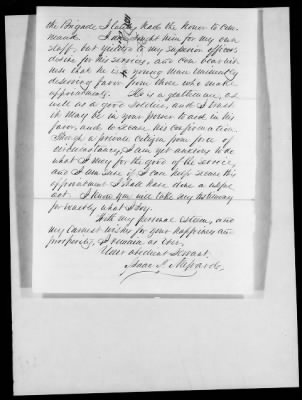 the Brigade I lately had the honor to com-
mand. I sought him for my own
staff, but yielded to my superior officers
desire for his services, and can bear wit-
ness that he is a young man eminently
deserving favor from those who make
appointments. He is a gentleman, as
well as a good soldier, and I trust
it may be in your power to aid in his
favor, and to secure his confirmation.
Though a private citizen from force of
circumstances, I am yet anxious to do
what I may for the good of the service,
and I am sure if I can help secure this
appointment I shall have done a wise
act. I know you will take my testimony
for exactly what I say.
With my personal esteem, and
my earnest wishes for your happiness and
prosperity, I remain as ever,
Your obedient Servant,
Isaac J.